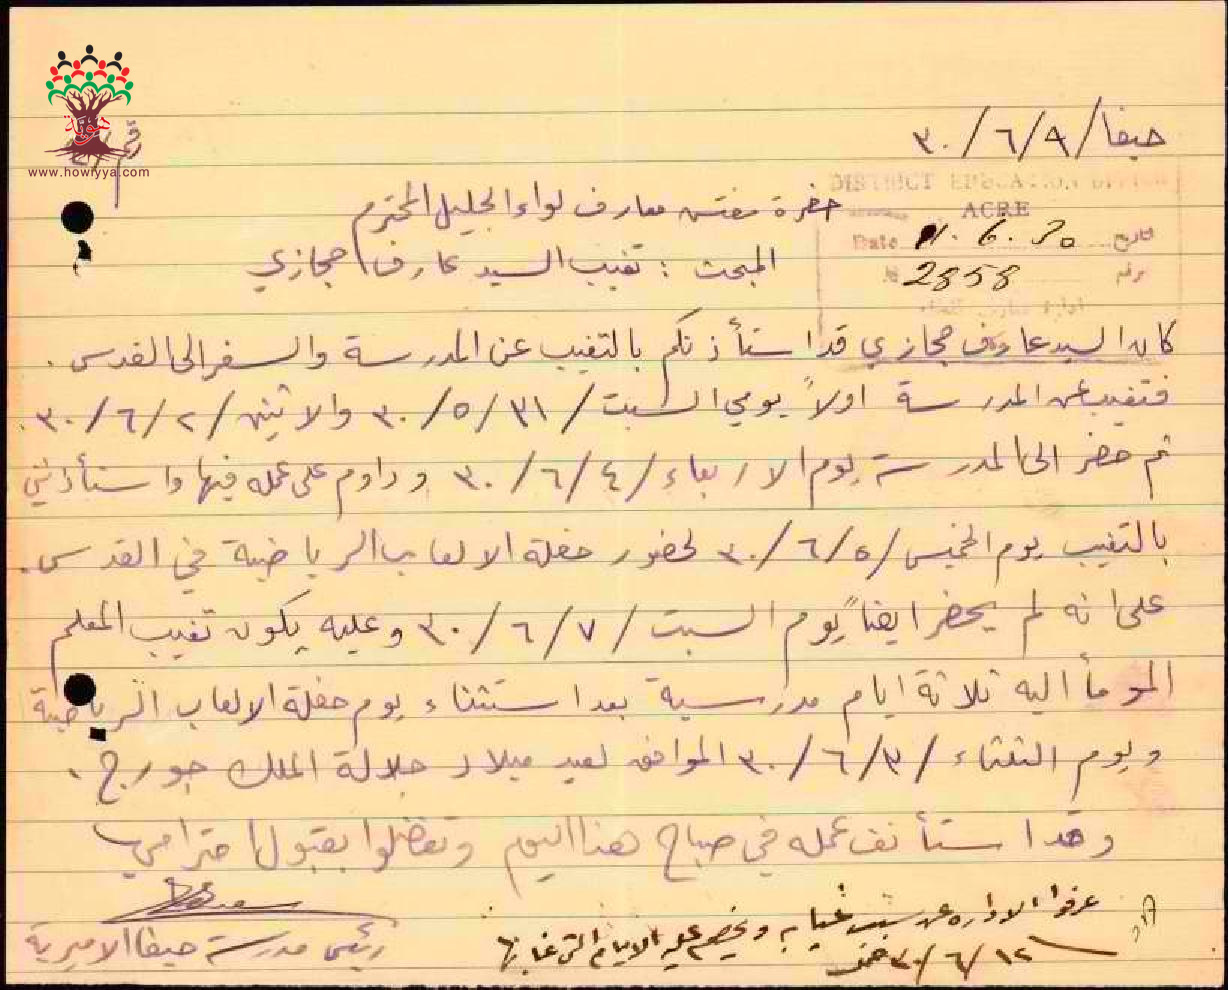 حيفا/ ٣٠/٦/٩
هوية
www.howiyya.com
DISTRICT EDUCATION OFFICE
ACRE
حضرة مفتش معارف لواء الجليل المحترم
Date 11. 6. 30 تاريخ
المبحث : تغيب السيد عارف حجازي
2858 رقم
كان السيد عارف حجازي قد استأذنكم بالتغيب عن المدرسة والسفر الى القدس .
فتغيب عن المدرسة اولاً يومي السبت /٣٠/٥/٣١ والاثنين /٣٠/٦/٢ .
ثم حضر الى المدرسة يوم الاربعاء /٣٠/٦/٤ وداوم على عمله فيها واستأذنني
بالتغيب يوم الخميس /٣٠/٦/٥ لحضور حفلة الالعاب الرياضية في القدس .
على انه لم يحضر ايضاً يوم السبت /٣٠/٦/٧ وعليه يكون تغيب المعلم
المومأ اليه ثلاثة ايام مدرسية بعد استثناء يوم حفلة الالعاب الرياضية
ويوم الثلثاء /٣٠/٦/٣ الموافق لعيد ميلاد جلالة الملك جورج .
وقد استأنف عمله في صباح هذا اليوم وتفضلوا بقبول احترامي
رئيس مدرسة حيفا الاميرية
عرفوا الاداره عن سبب غيابه ويخصم عليه الايام التي غابها
٣٠/٦/١٢